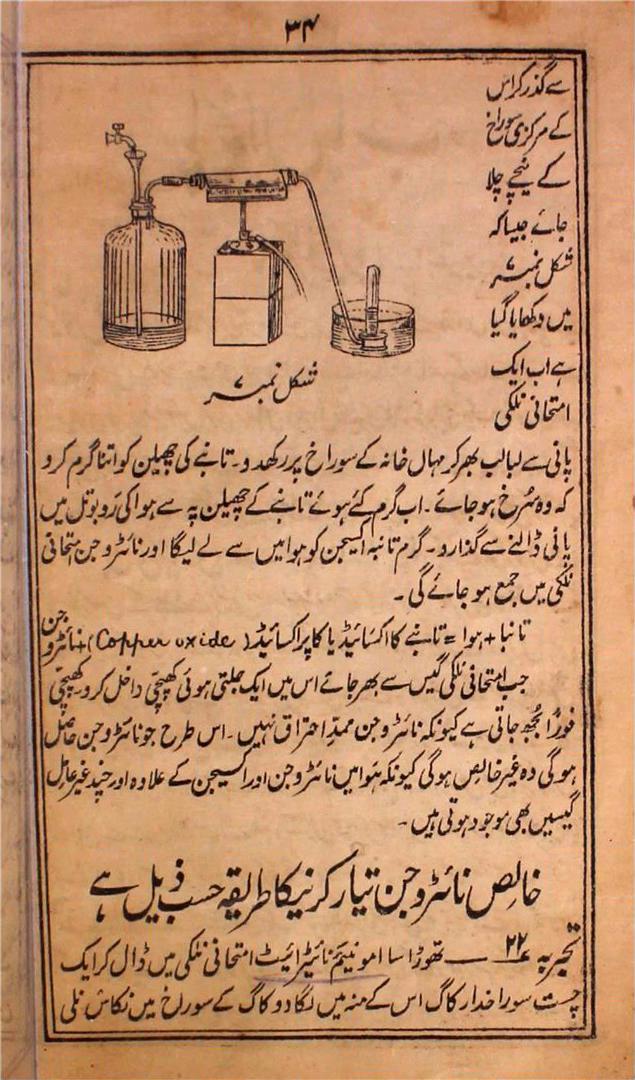 ۳۴
سے گذر کر اس
کے مرکزی سوراخ
کے نیچے چلا
جائے جیسا کہ
شکل نمبر ۷
میں دکھایا گیا
ہے اب ایک
امتحانی نلکی
شکل نمبر ۷
پانی سے لبالب بھر کر مہال خانہ کے سوراخ پر رکھدو۔ تانبے کی چھیلن کو اتنا گرم کرو
کہ وہ سُرخ ہو جائے۔ اب گرم کئے ہوئے تانبے کے چھیلن پہ سے ہوا کی رَو بوتل میں
پانی ڈالنے سے گذارو۔ گرم تانبہ آکسیجن کو ہوا میں سے لے لیگا اور نائٹروجن امتحانی
نلکی میں جمع ہو جائے گی۔
تانبا + ہوا = تانبے کا اکسائیڈ یا کاپر اکسائیڈ (Copper oxide) + نائٹروجن
جب امتحانی نلکی گیس سے بھر جائے اس میں ایک جلتی ہوئی کھپچّی داخل کرو۔ کھپچّی
فورًا بُجھ جاتی ہے کیونکہ نائٹروجن ممدِّ احتراق نہیں۔ اس طرح جو نائٹروجن حاصل
ہو گی وہ غیر خالص ہو گی کیونکہ ہَوا میں نائٹروجن اور اکسیجن کے علاوہ اور چند غیر عامل
گیسیں بھی موجود ہوتی ہیں۔
خالص نائٹروجن تیار کرنیکا طریقہ حسب ذیل ہے
تجربہ ۲۲ — تھوڑا سا امونیَم نائیٹرائیٹ امتحانی نلکی میں ڈال کر ایک
چست سوراخدار کاگ اس کے منہ میں لگا دو کاگ کے سوراخ میں نکاس نلی